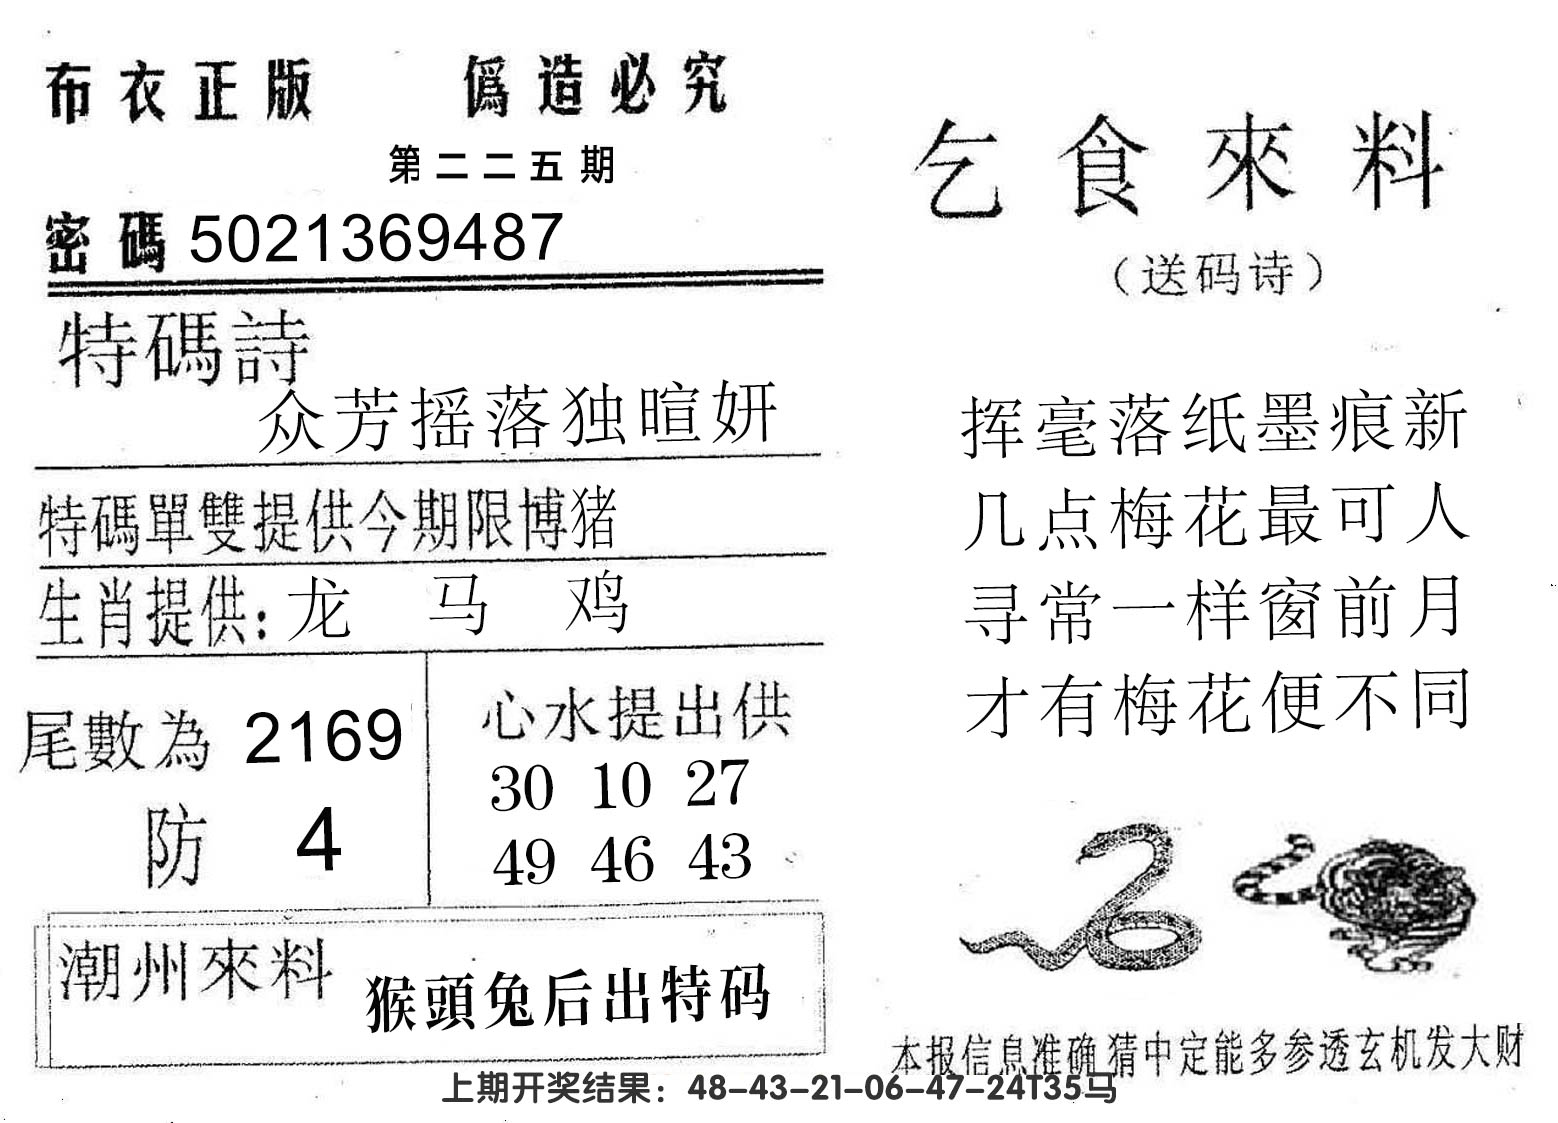 布衣正版 僞造必究
第二二五期
密碼 5021369487
特碼詩
众芳摇落独暄妍
特碼單雙提供今期限博猪
生肖提供: 龙 马 鸡
尾數為 2169
防 4
心水提出供
30 10 27
49 46 43
潮州來料 猴頭兔后出特码
乞食來料
(送码诗)
挥毫落纸墨痕新
几点梅花最可人
寻常一样窗前月
才有梅花便不同
本报信息准确猜中定能多参透玄机发大财
上期开奖结果：48-43-21-06-47-24T35马